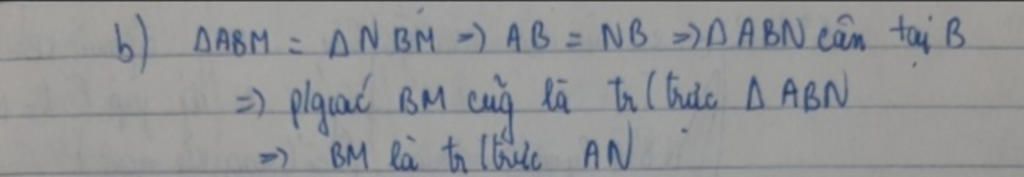 b) ΔABM = ΔNBM => AB = NB => ΔABN cân tại B
=> p/giác BM cũg là tr/trực ΔABN
=> BM là tr/trực AN